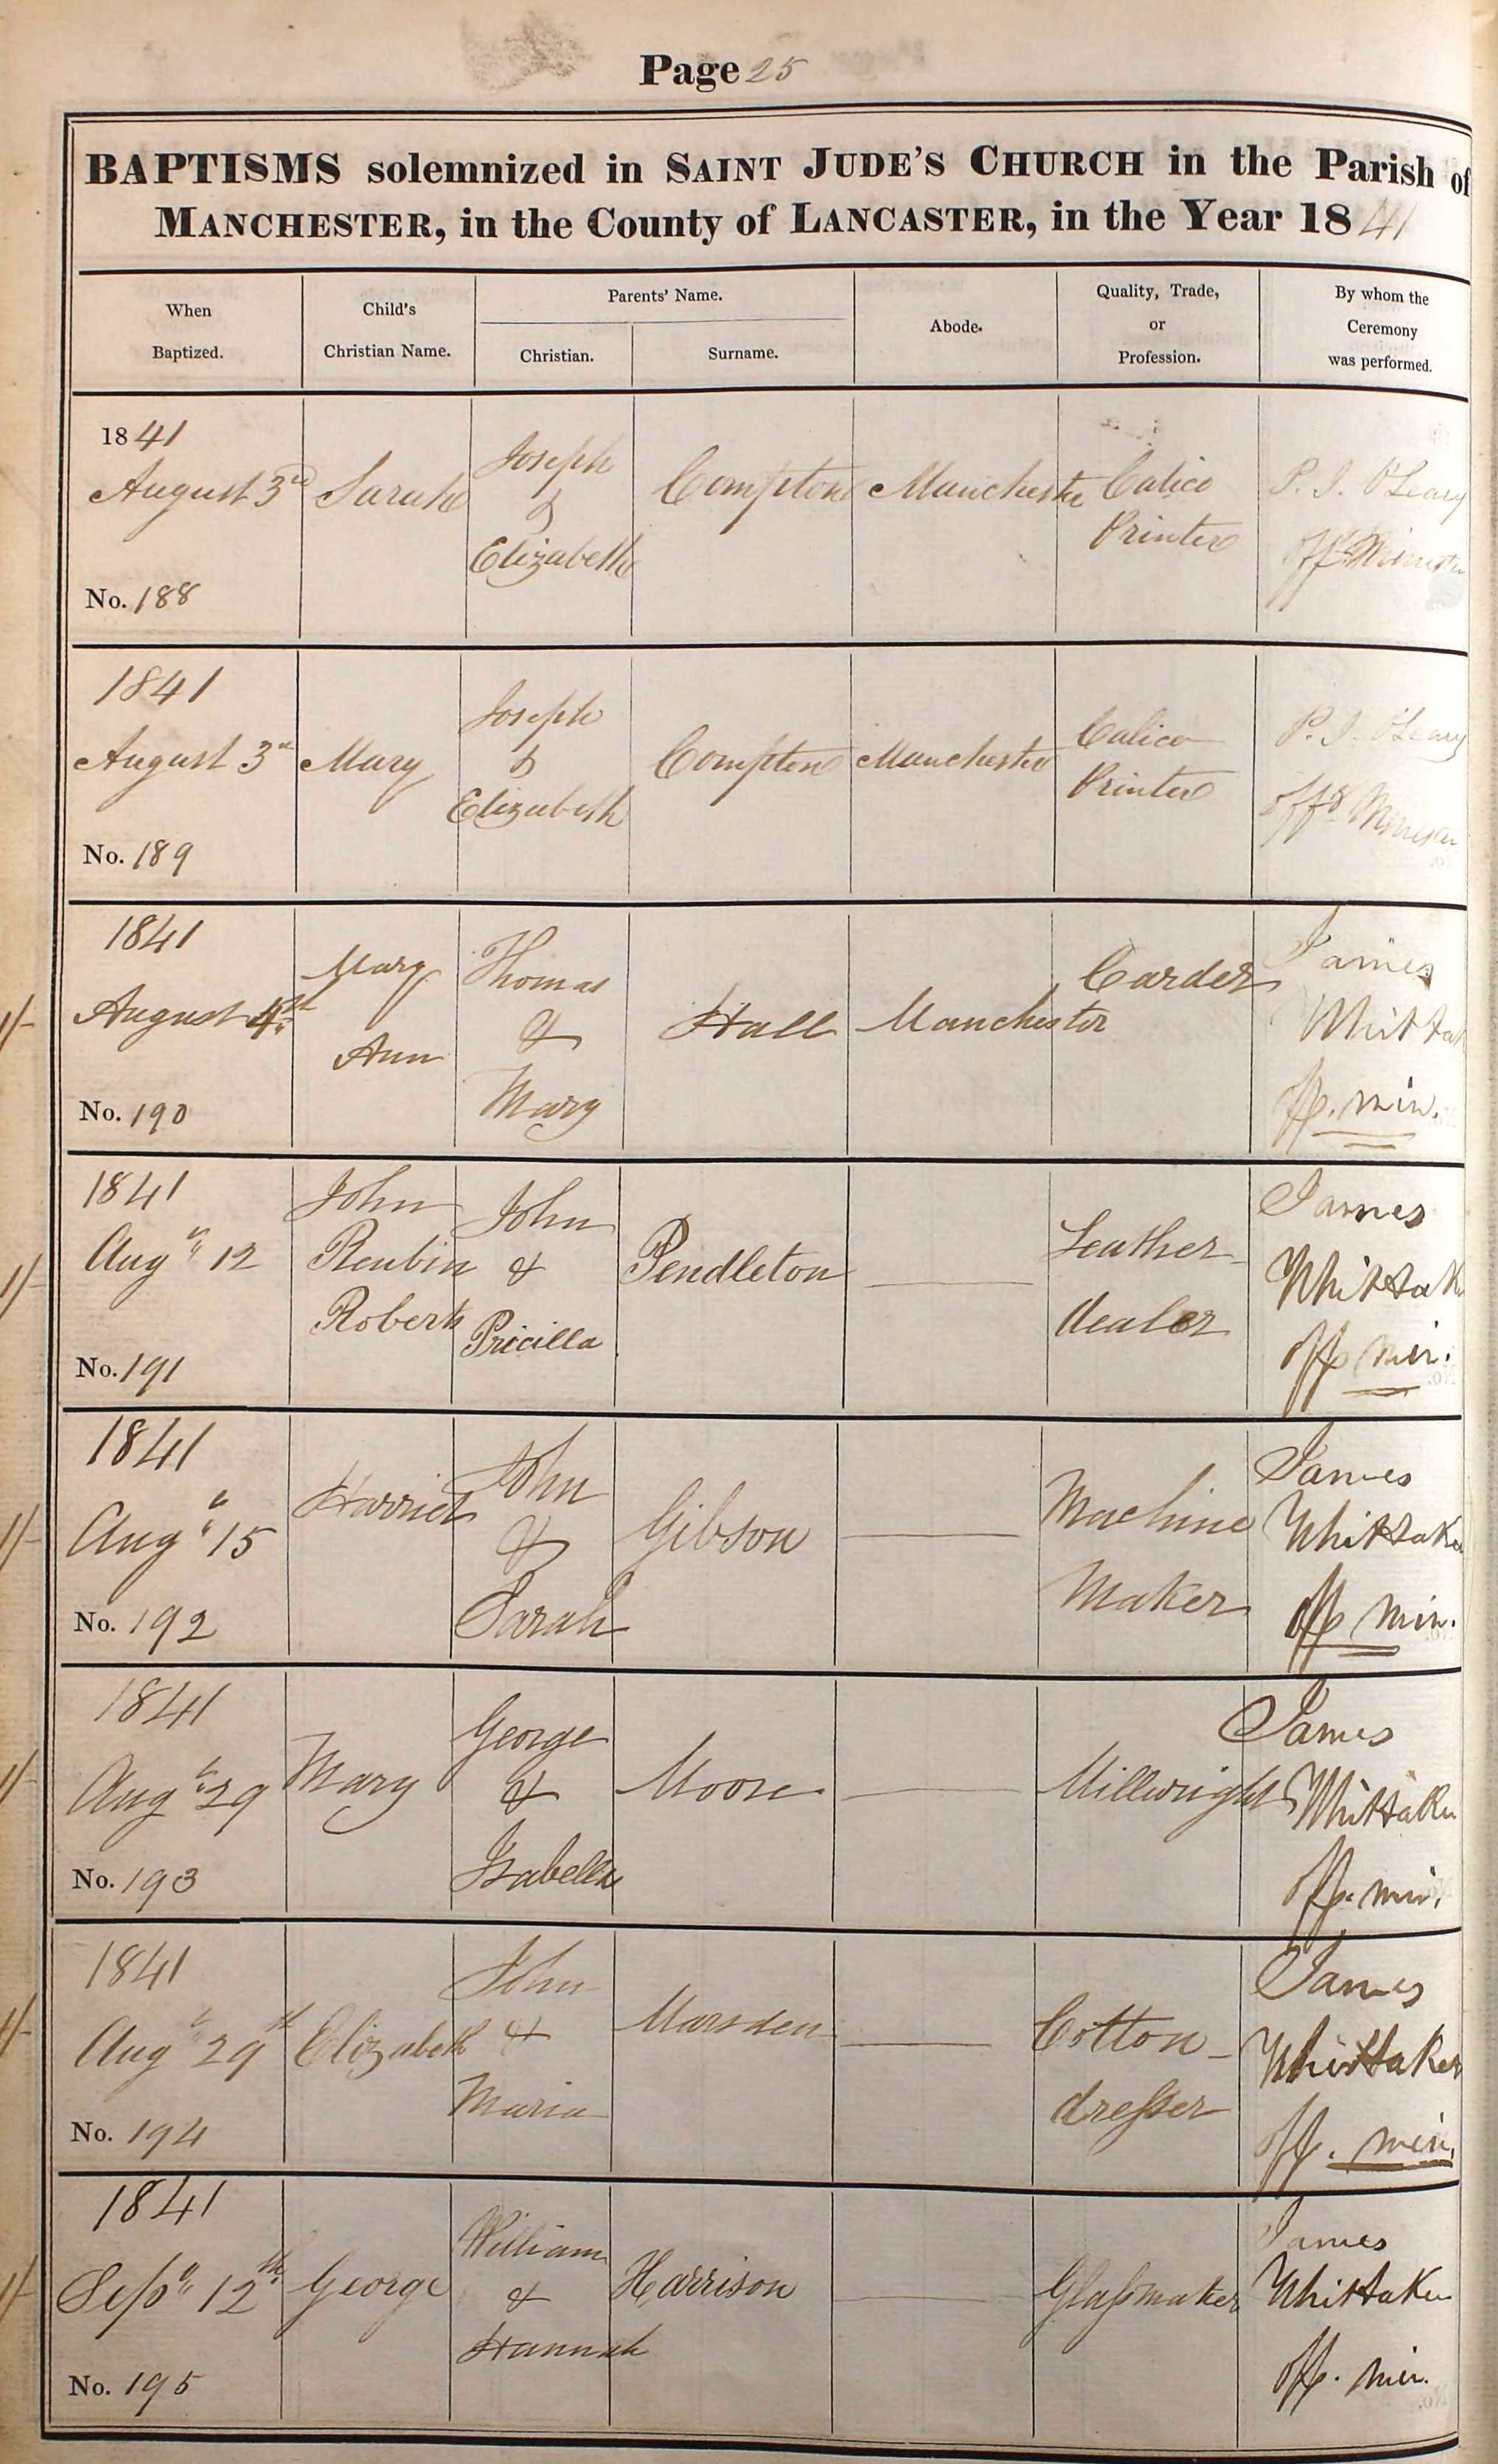 Page 25
BAPTISMS solemnized in SAINT JUDE'S CHURCH in the Parish of
MANCHESTER, in the County of LANCASTER, in the Year 1841
When Baptized.
Child's Christian Name.
Parents' Name.
Christian.
Surname.
Abode.
Quality, Trade, or Profession.
By whom the Ceremony was performed.
1841
August 3rd
No. 188
Sarah
Joseph
&
Elizabeth
Compton
Manchester
Calico
Printer
P. J. O'Leary
Offg Minister
1841
August 3rd
No. 189
Mary
Joseph
&
Elizabeth
Compton
Manchester
Calico
Printer
P. J. O'Leary
Offg Minister
1/-
1841
August 4th
No. 190
Mary
Ann
Thomas
&
Mary
Hall
Manchester
Carder
James
Whittak
off. min.
1/-
1841
Aug " 12
No. 191
John
Reubin
Robert
John
&
Pricilla
Pendleton
Leather
dealer
James
Whittak
off min.
1/-
1841
Aug " 15
No. 192
Harriet
John
&
Sarah
Gibson
Machine
Maker
James
Whittaker
off min.
1/-
1841
Aug " 29
No. 193
Mary
George
&
Isabella
Moore
Millwright
James
Whittaker
off. min.
1/-
1841
Aug " 29th
No. 194
Elizabeth
John
&
Maria
Marsden
Cotton-
dresser
James
Whittaker
off. min.
1/-
1841
Sep " 12th
No. 195
George
William
&
Hannah
Harrison
Glassmaker
James
Whittaker
off. min.